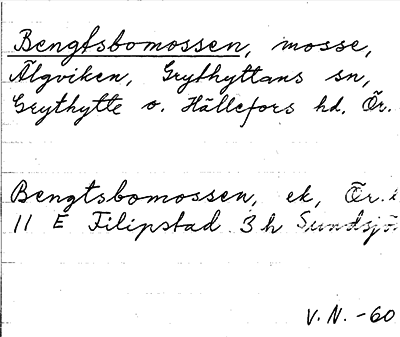 Bengtsbomossen, mosse,
Älgviken, Grythyttans sn,
Grythytte o. Hällefors hd. Ör.
Bengtsbomossen, ek, Ör.
11 E Filipstad 3 h Sundsjö
V.N. -60